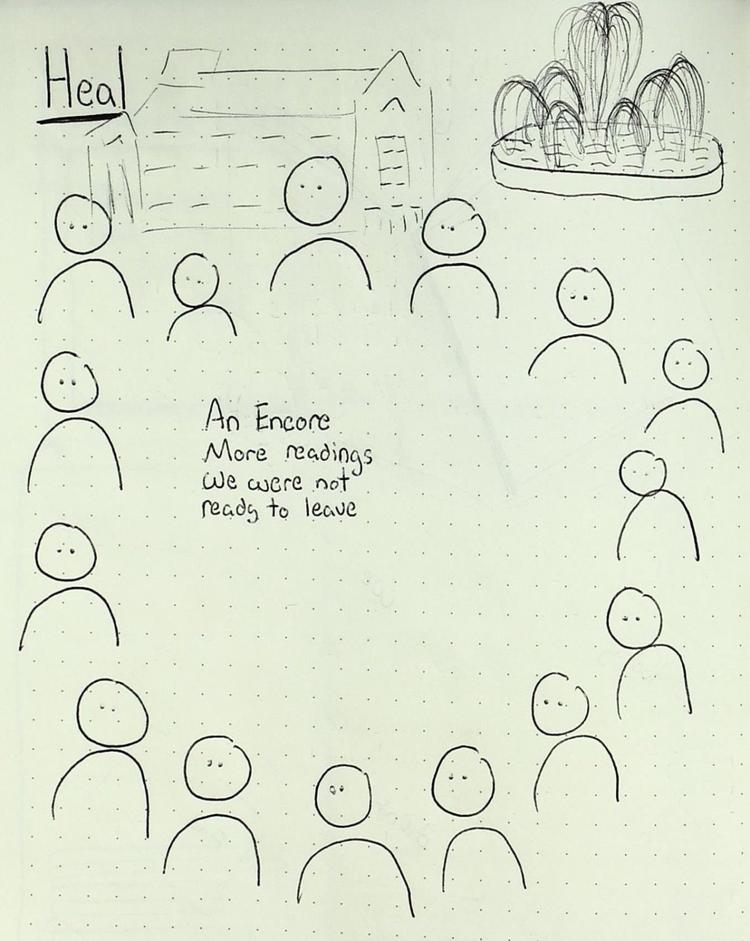 Heal
An Encore
More readings
We were not
ready to leave